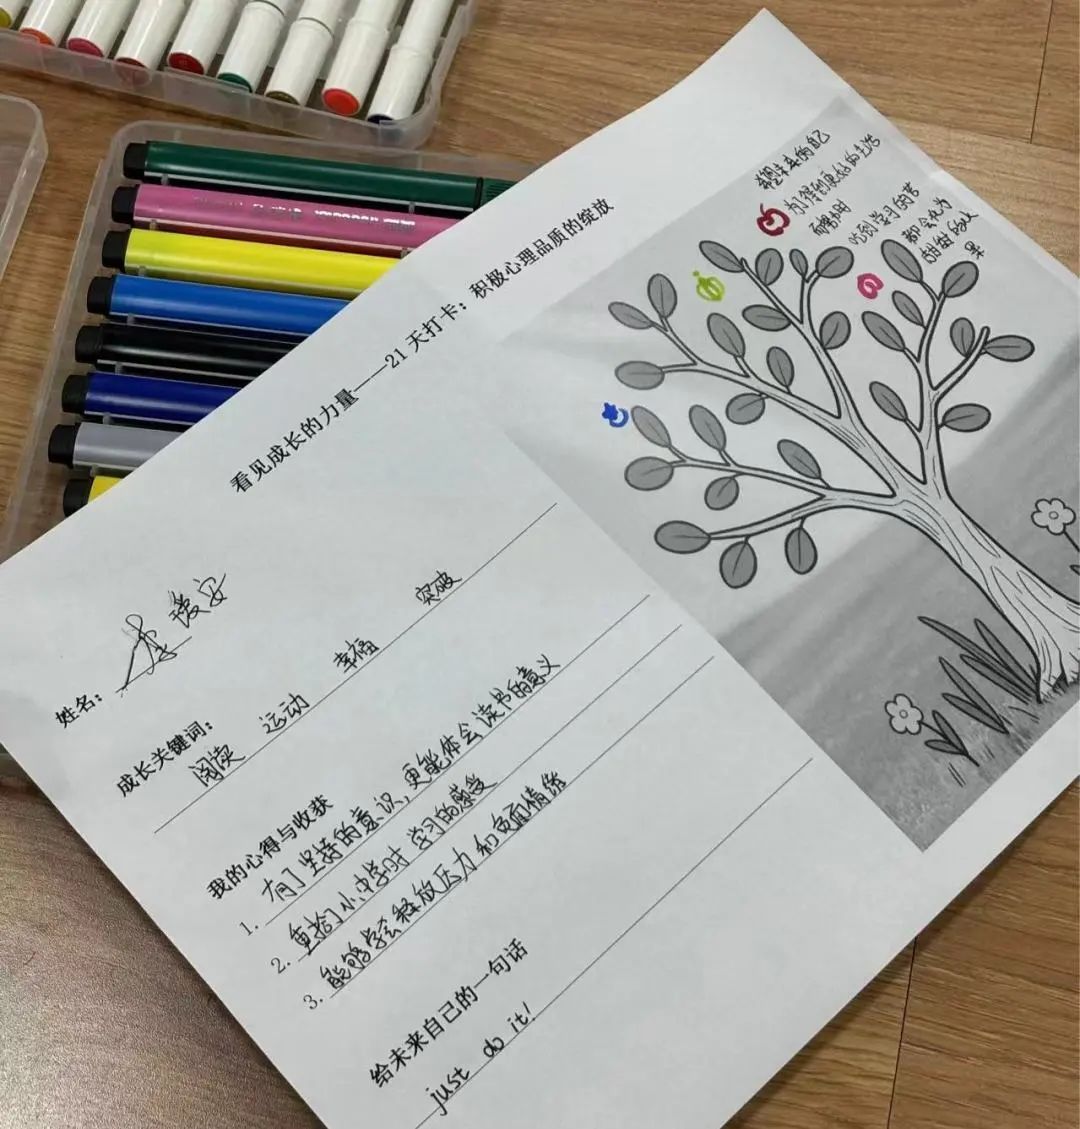 看见成长的力量——21天打卡：积极心理品质的绽放
姓名：李 瑷安
成长关键词：
阅读 运动 幸福 突破
我的心得与收获
1. 有了坚持的意识，更能体会读书的意义
2. 重拾了小中学时学习的感受
3. 能够学会释放压力和负面情绪
给未来自己的一句话
just do it!
希望未来的自己
为了得到更好的生活
而努力
吃到学习的苦
都会成为
甜甜的
果